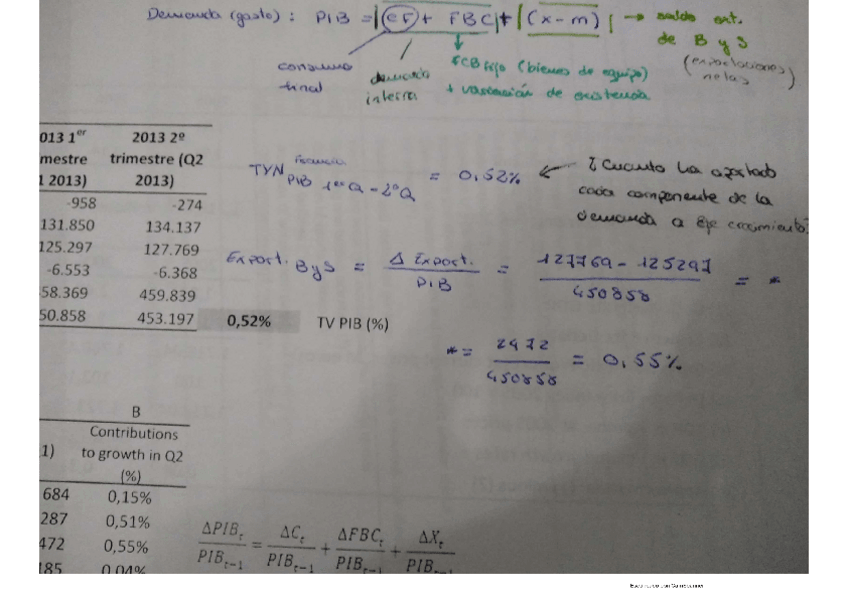 Demanda (gasto) : PIB = |CF + FBC| + |(x - m)| → saldo ext.
de B y S
(exportaciones netas)
consumo final
demanda interna
FCB fijo (bienes de equipo)
+ variación de existencia
013 1er
mestre
1 2013)
2013 2º
trimestre (Q2
2013)
-958 -274
131.850 134.137
125.297 127.769
-6.553 -6.368
58.369 459.839
50.858 453.197 0,52% TV PIB (%)
TVN PIB 1er Q - 2º Q = 0,52% ← ¿Cuanto ha aportado
cada componente de la
demanda a ese crecimiento?
Export. B y S = Δ Export. / PIB = 127769 - 125297 / 450858 = *
* = 2472 / 450858 = 0,55%
B
Contributions
1) to growth in Q2
(%)
684 0,15%
287 0,51%
472 0,55%
185 0,04%
ΔPIBt / PIBt-1 = ΔCt / PIBt-1 + ΔFBCt / PIBt-1 + ΔXt / PIBt-1